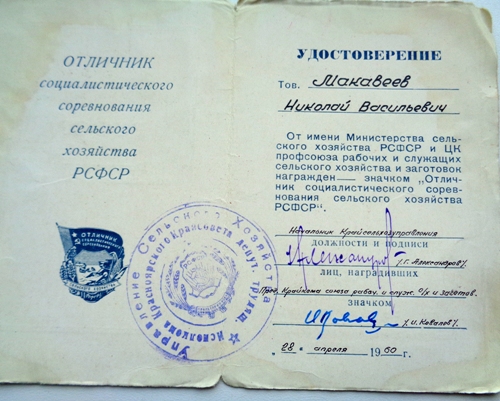 ОТЛИЧНИК
социалистического
соревнования
сельского
хозяйства
РСФСР
ОТЛИЧНИК
УДОСТОВЕРЕНИЕ
Тов. Макавеев
Николай Васильевич
От имени Министерства сель-
ского хозяйства РСФСР и ЦК
профсоюза рабочих и служащих
сельского хозяйства и заготовок
награжден — значком "Отлич-
ник социалистического соревно-
вания сельского хозяйства
РСФСР".
Начальник Крайсельхозуправления
должности и подписи
/Г. Александров/
лиц, наградивших
Пред. Крайкома союза рабоч. и служ. с/х и заготов.
значком
/И. Ковалев/
"28" апреля 1960 г.
Управление Сельского Хозяйства
Исполкома Красноярского Крайсовета депут. трудящ.